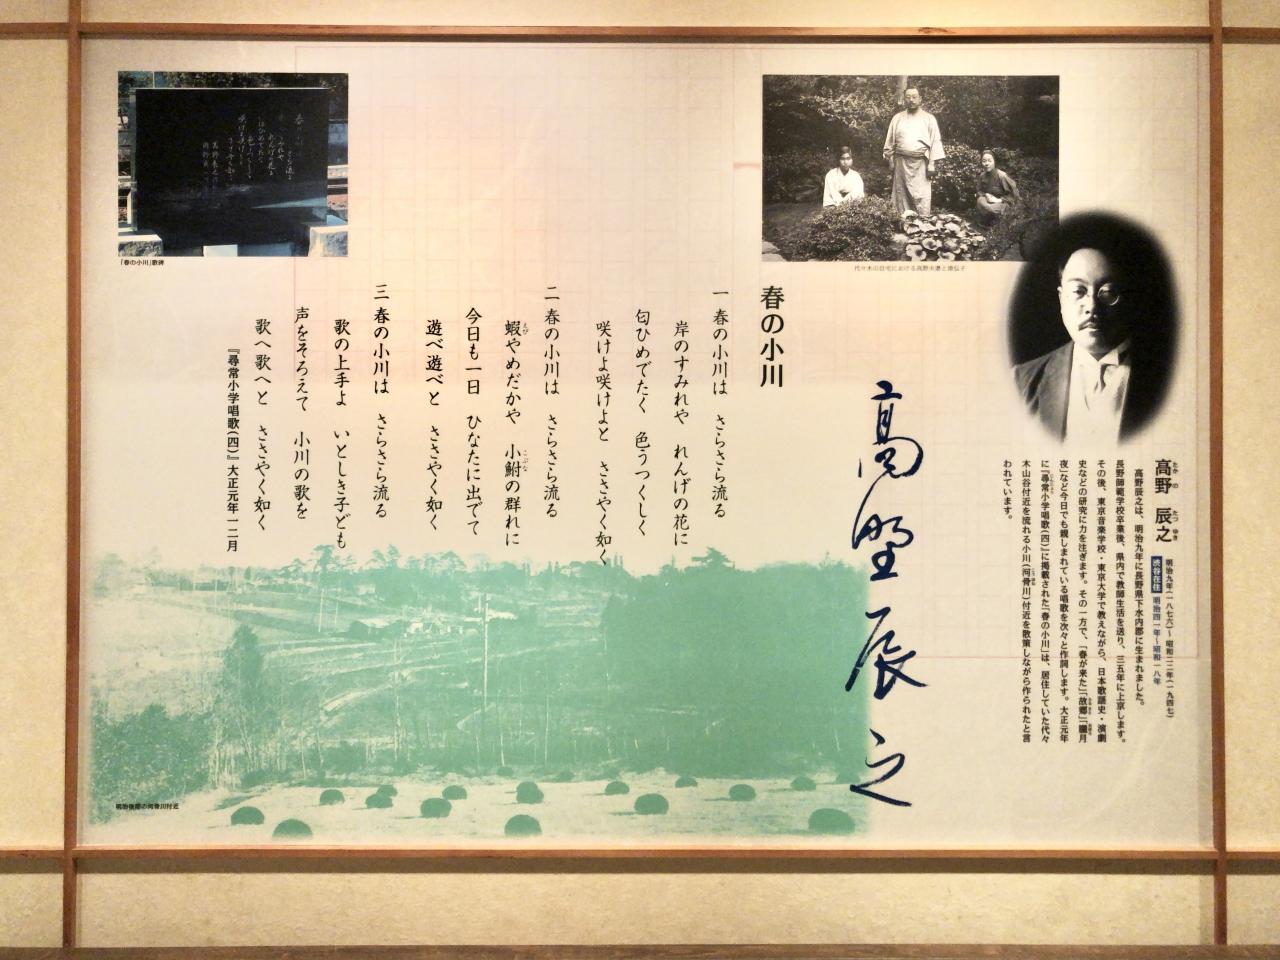 高野 辰之
明治九年(一八七六)～昭和二二年(一九四七)
渋谷在住 明治四一年～昭和一八年
高野辰之は、明治九年に長野県下水内郡に生まれました。
長野師範学校卒業後、県内で教師生活を送り、三五年に上京します。
その後、東京音楽学校・東京大学で教えながら、日本歌謡史・演劇
史などの研究に力を注ぎます。その一方で、「春が来た」「故郷」「朧月
夜」など今日でも親しまれている唱歌を次々と作詞します。大正元年
に『尋常小学唱歌(四)』に掲載された「春の小川」は、居住していた代々
木山谷付近を流れる小川(河骨川)付近を散策しながら作られたと言
われています。
代々木の自宅における高野夫妻と
高野辰之
春の小川
一 春の小川は さらさら流る
岸のすみれや れんげの花に
匂ひめでたく 色うつくしく
咲けよ咲けよと ささやく如く
二 春の小川は さらさら流る
蝦やめだかや 小鮒の群れに
今日も一日 ひなたに出でて
遊べ遊べと ささやく如く
三 春の小川は さらさら流る
歌の上手よ いとしき子ども
声をそろえて 小川の歌を
歌へ歌へと ささやく如く
『尋常小学唱歌(四)』大正元年一二月
「春の小川」歌碑
明治後期の河骨川付近